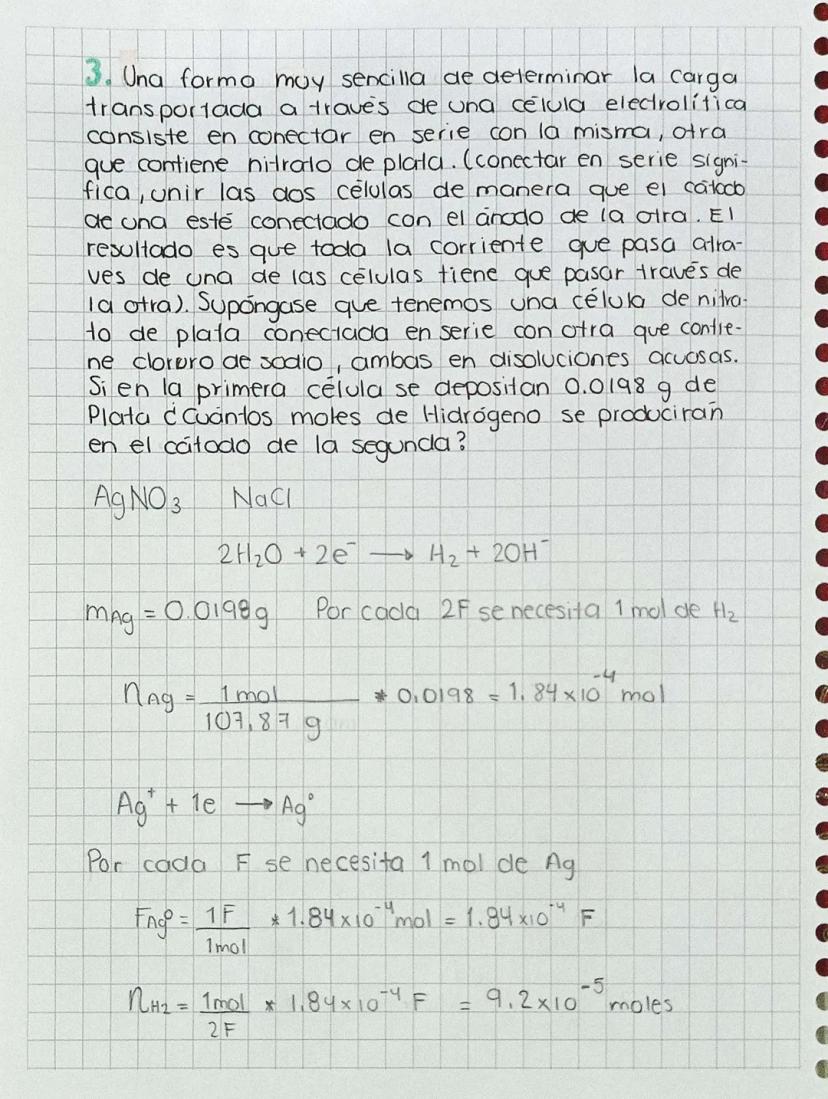 3. Una forma muy sencilla de determinar la carga
transportada a través de una célula electrolítica
consiste en conectar en serie con la misma, otra
que contiene nitrato de plata. (conectar en serie signi-
fica, unir las dos células de manera que el cátodo
de una esté conectado con el ánodo de la otra. El
resultado es que toda la corriente que pasa atra-
ves de una de las células tiene que pasar través de
la otra). Supóngase que tenemos una célula de nitra-
to de plata conectada en serie con otra que contie-
ne cloruro de sodio, ambas en disoluciones acuosas.
Si en la primera célula se depositan 0.0198 g de
Plata ¿Cuántos moles de Hidrógeno se producirán
en el cátodo de la segunda?
AgNO₃ NaCl
2H₂O + 2e⁻ → H₂ + 2OH⁻
mAg = 0.0198g Por cada 2F se necesita 1 mol de H₂
nAg = 1 mol / 107,87 g * 0,0198 = 1.84x10⁻⁴ mol
Ag⁺ + 1e → Ag°
Por cada F se necesita 1 mol de Ag
FAg° = 1F / 1mol * 1.84x10⁻⁴ mol = 1.84x10⁻⁴ F
nH₂ = 1mol / 2F * 1,84x10⁻⁴ F = 9.2x10⁻⁵ moles